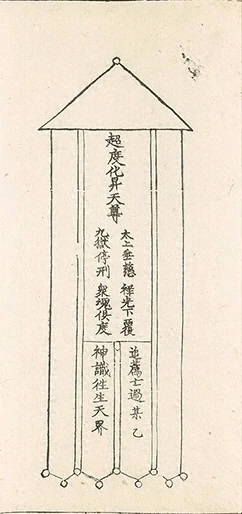 超度化昇天尊
太上垂慈 祥光下覆
九獄停刑 衆魂俱度
追薦亡過某乙
神識往生天界